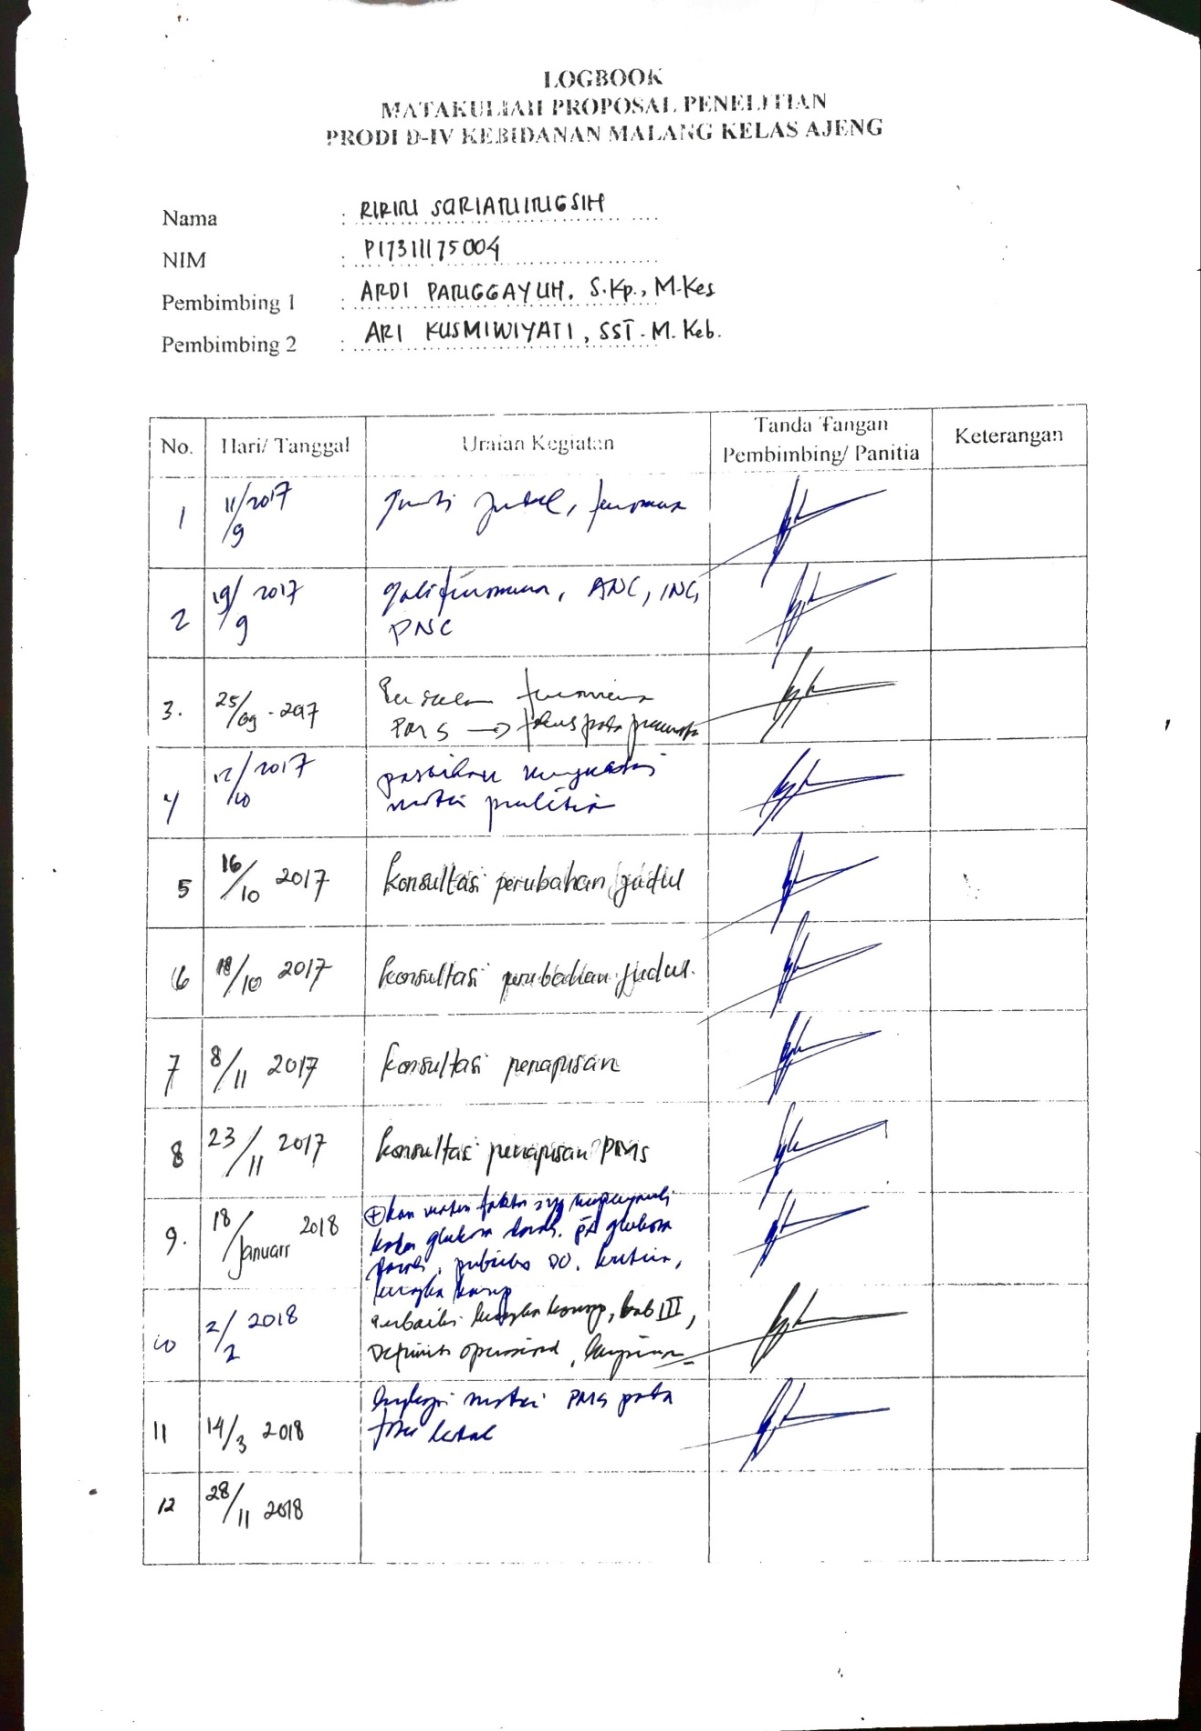 LOGBOOK
MATAKULIAH PROPOSAL PENELITIAN
PRODI D-IV KEBIDANAN MALANG KELAS AJENG
Nama : RIRIN SARIANINGSIH
NIM : P17311175004
Pembimbing 1 : ARDI PANGGAYUH, S.Kp., M.Kes
Pembimbing 2 : ARI KUSMIWIYATI, SST. M. Keb.
No. Hari/ Tanggal Uraian Kegiatan Tanda Tangan Pembimbing/ Panitia Keterangan
1 11/9 2017 Judul,
2 19/9 2017 gali fenomena, ANC, INC,
PNC
3. 25/09-2017 fenomena
PMS → fokus pada
4 12/10 2017 pastikan
materi
5 16/10 2017 konsultasi perubahan judul
6 18/10 2017 konsultasi perubahan judul.
7 8/11 2017 konsultasi penapisan
8 23/11 2017 konsultasi penapisan PMS
9. 18/Januari 2018 ⊕kan materi faktor yg mempengaruhi
kadar glukosa darah. glukosa
darah, DO, kriteria,
kerangka konsep
10 2/2 2018 perbaiki kerangka konsep, bab III,
Definisi operasional,
11 14/3 2018 lengkapi materi PMS pada
fase luteal
12 28/11 2018